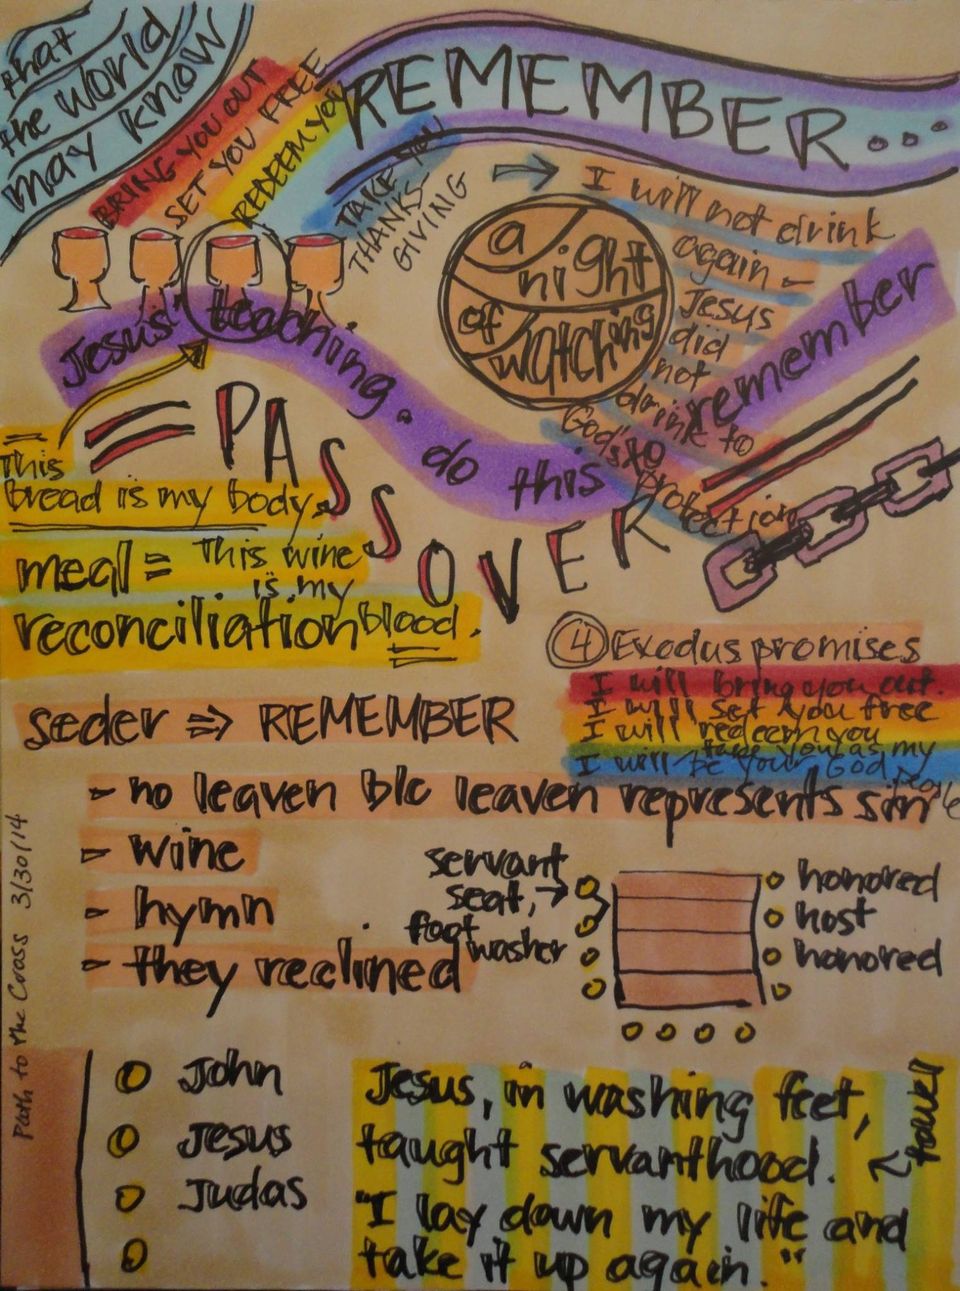 that
the world
may know
REMEMBER...
BRING YOU OUT
SET YOU FREE
REDEEM YOU
TAKE YOU
THANKS-
GIVING
→ I will not drink
again -
Jesus
did
not
drink to
God's
protection
a night
of watching
Jesus' teaching: do this to remember
= PASSOVER
= This
bread is my body.
meal = This wine
is my
reconciliation blood.
④ Exodus promises
I will bring you out.
I will set you free
I will redeem you
take you as my
I will be your God people
seder ⇒ REMEMBER
- no leaven b/c leaven represents sin
- wine
- hymn
- they reclined
servant
seat, →
foot
washer
honored
host
honored
Path to the Cross 3/30/14
John
Jesus
Judas
Jesus, in washing feet,
taught servanthood. ← towel
"I lay down my life and
take it up again."